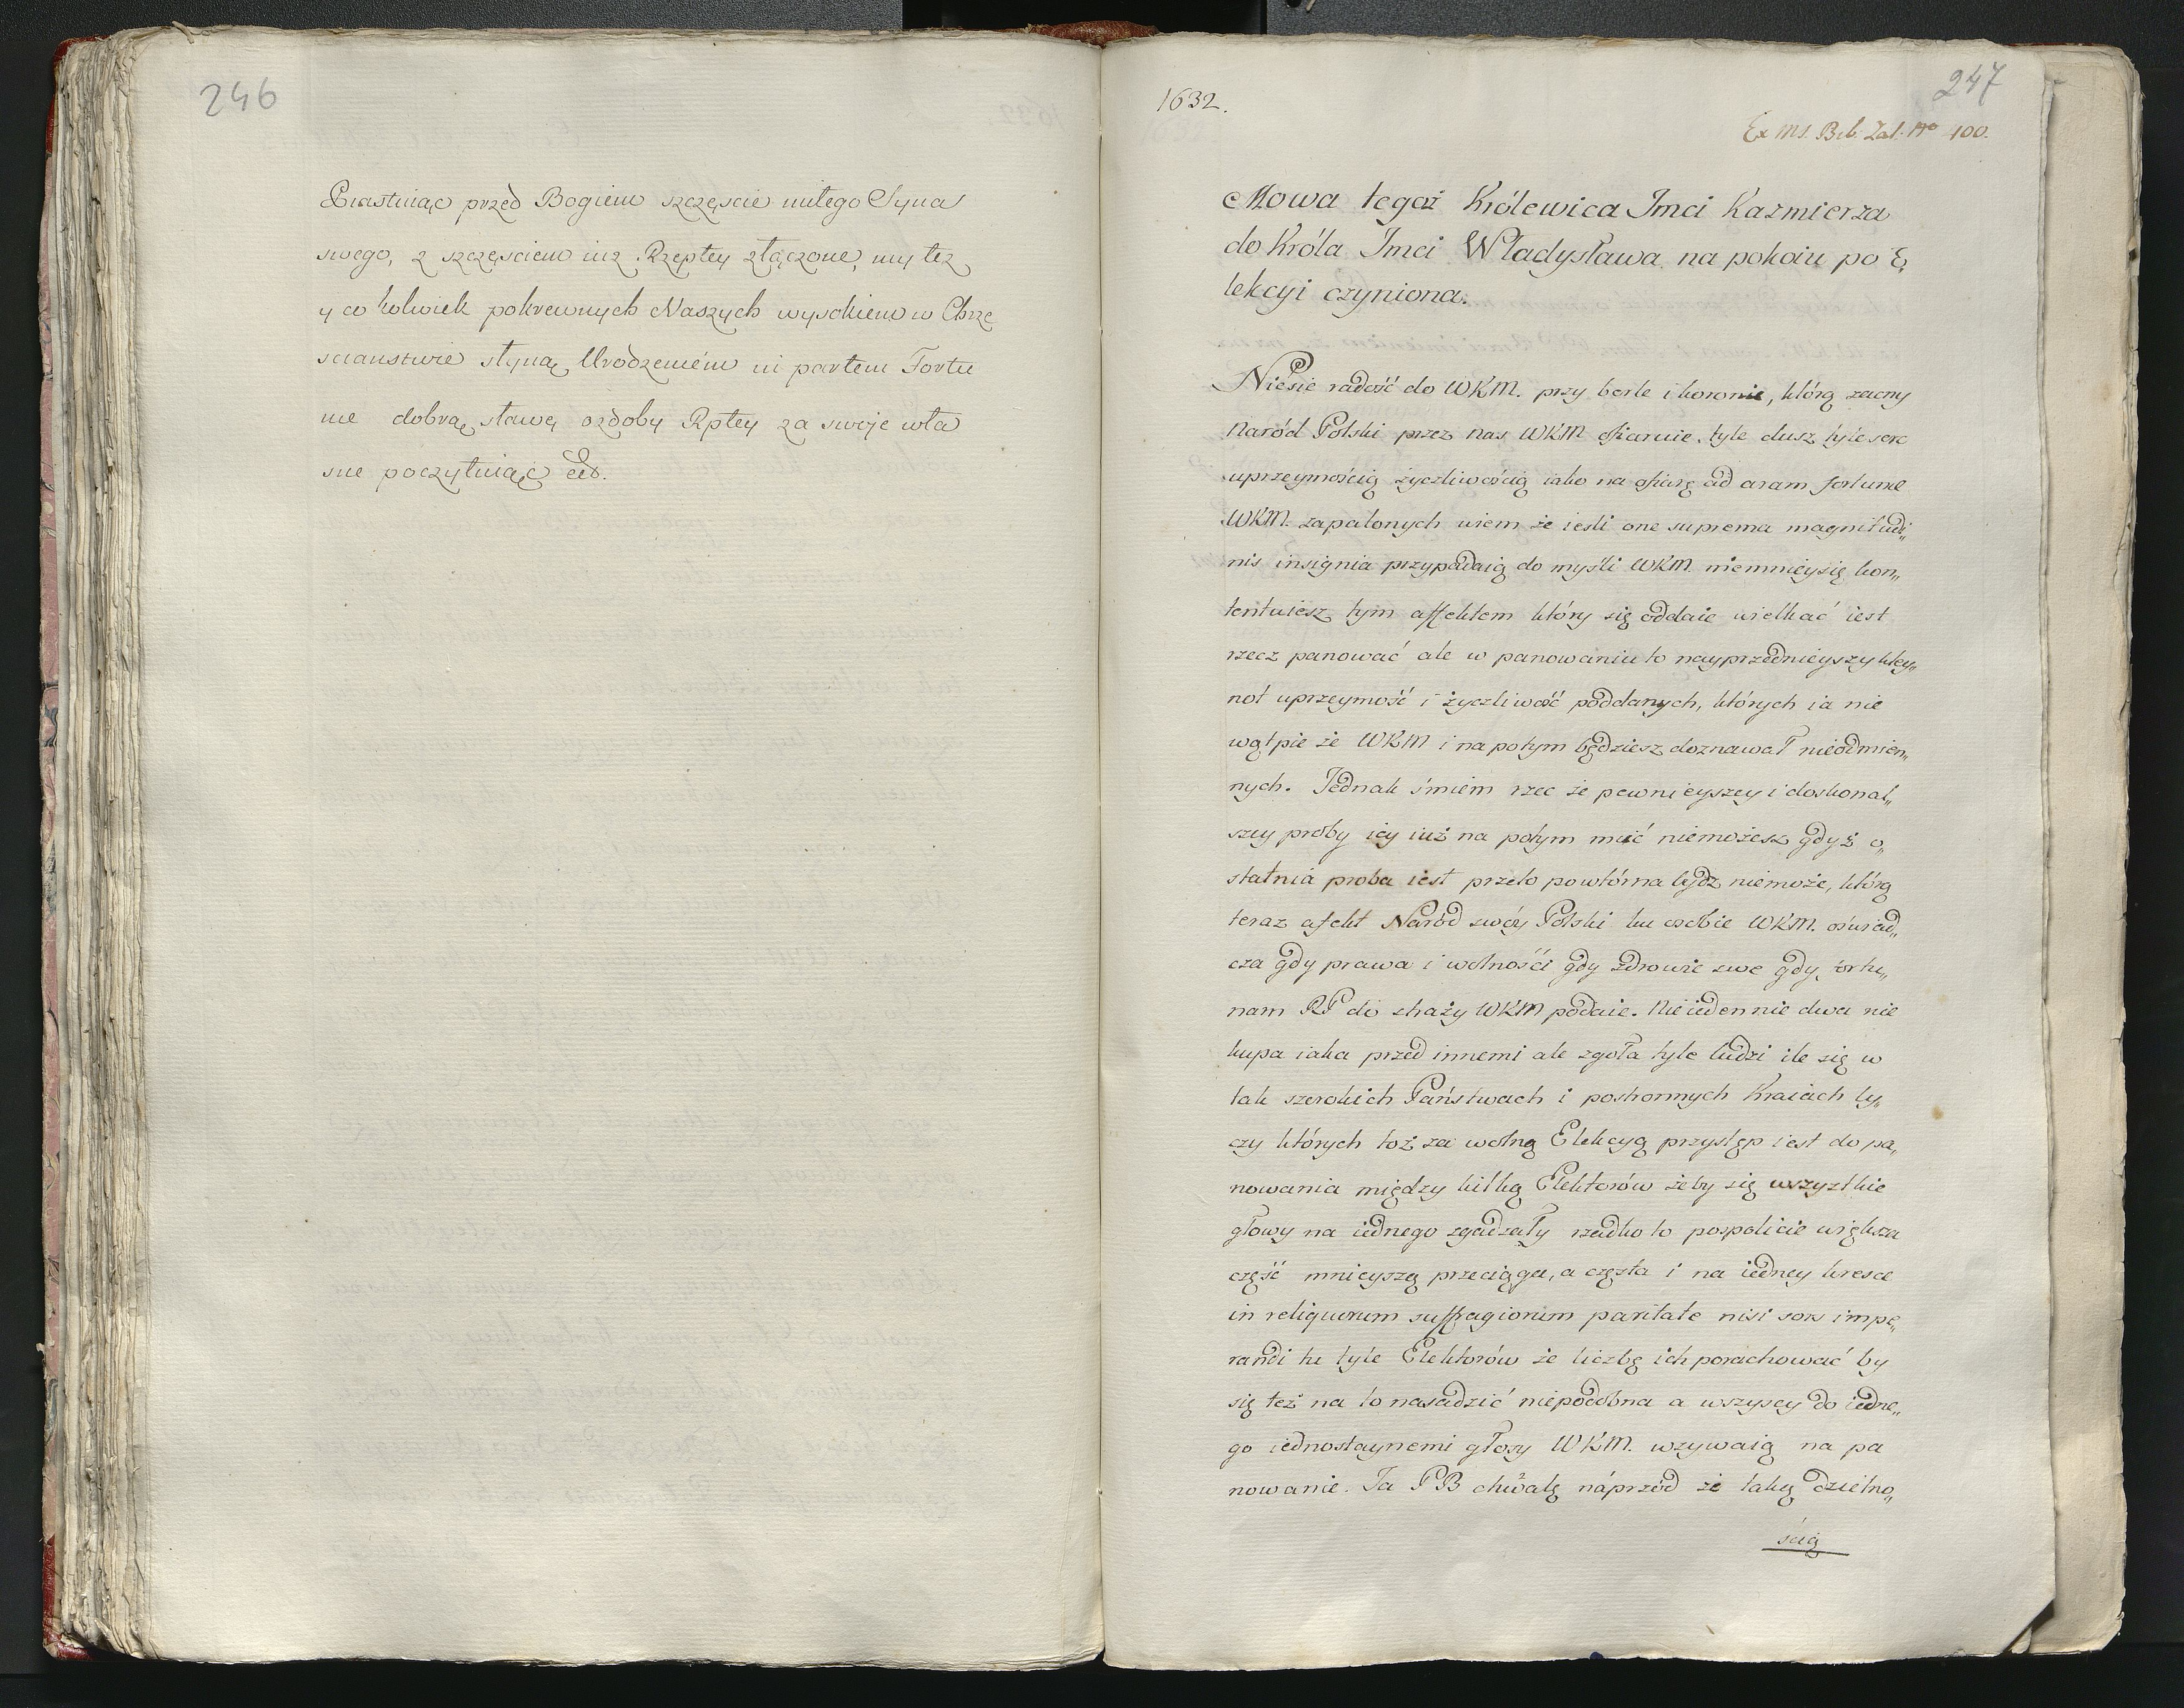 246
Piastuiąc przed Bogiem szczęście miłego Syna
swego, z szczęściem iuz Rzeptey złączone, my tez
y co kolwiek pokrewnych Naszych wysokiem w Chrze
scianstwie słyną Urodzeniem in partem Fortu
ne dobrą sławę ozdoby Rptey za swoje wła
sne poczytuiąc etc.
1632.
247
Ex Ms. Bib. Zal. No 400.
Mowa tegoż Królewica Jmci Kazmierza
do Króla Jmci Władysława na pokoiu po E,
lekcyi czyniona.
Niesie radość do WKM. przy berle i koronie, którą zacny
Naród Polski przez nas WKM ofiaruie, tyle dusz tyle serc
uprzeymością życzliwością iako na ofiarę ad aram fortunæ
WKM. zapalonych wiem że iesli one suprema magnitudi„
nis insignia przypadaią do myśli WKM. niemnieysię kon„
tentuiesz tym affektem który się oddaie wielkać iest
rzecz panować ale w panowaniu to nayprzednieyszy kley„
not uprzeymość i życzliwość poddanych, których ia nie
wątpie że WKM i na potym będziesz doznawał nieodmien„
nych. Jednak śmiem rzec że pewnieyszey i doskonal„
szey proby iey iuż na potym mieć niemożesz gdyż o„
statnia proba iest przeto powtórna bydz niemoże, którą
teraz afekt Naród swóy Polski ku osobie WKM. oświad„
cza gdy prawa i wolnośći gdy zdrowie swe gdy fortu„
nam RP do straży WKM podaie. Nie ieden nie dwa nie
kupa iaka przed innemi ale zgoła tyle ludzi ile się w
tak szerokich Państwach i postronnych Kraiach li„
czy których toż za wolną Elekcyą przystęp iest do pa„
nowania między kilką Elektorów żeby się wszystkie
głowy na iednego zgadzały rzadko to pospolicie większa
część mnieyszą przeciąga, a częsta i na iedney kresce
in reliquorum suffragiorum paritate nisi sors impe„
randi tu tyle Elektorów że liczbę ich porachować by
się też na to nasadzić niepodobna a wszyscy do iedne„
go iednostaynemi głosy WKM. wzywaią na pa
nowanie. Ja PB chwalę náprzód że taką dzielno„
ścią